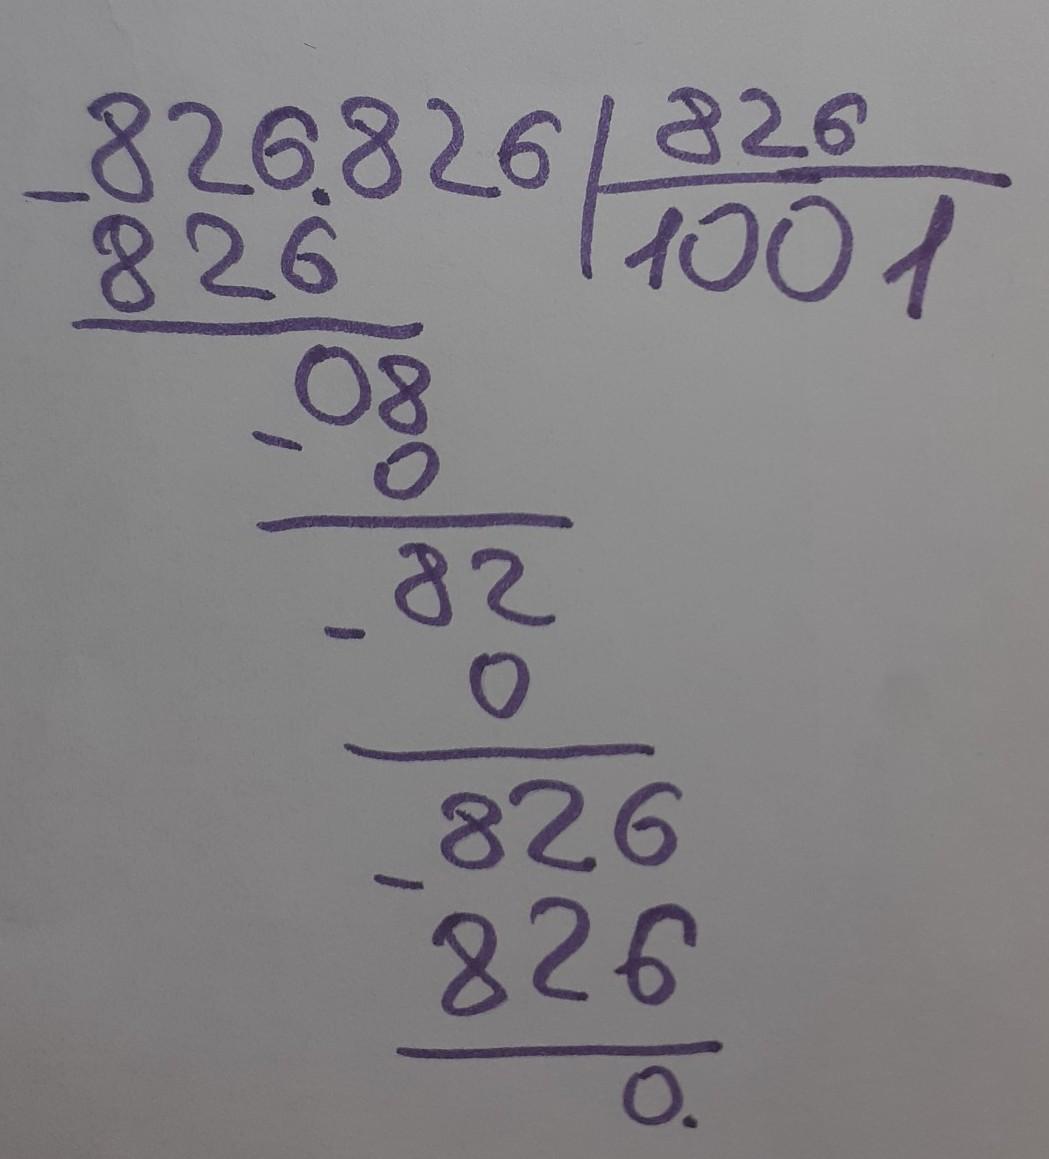 -826.826 | 826
826 1001
-08
0
-82
0
-826
826
0.